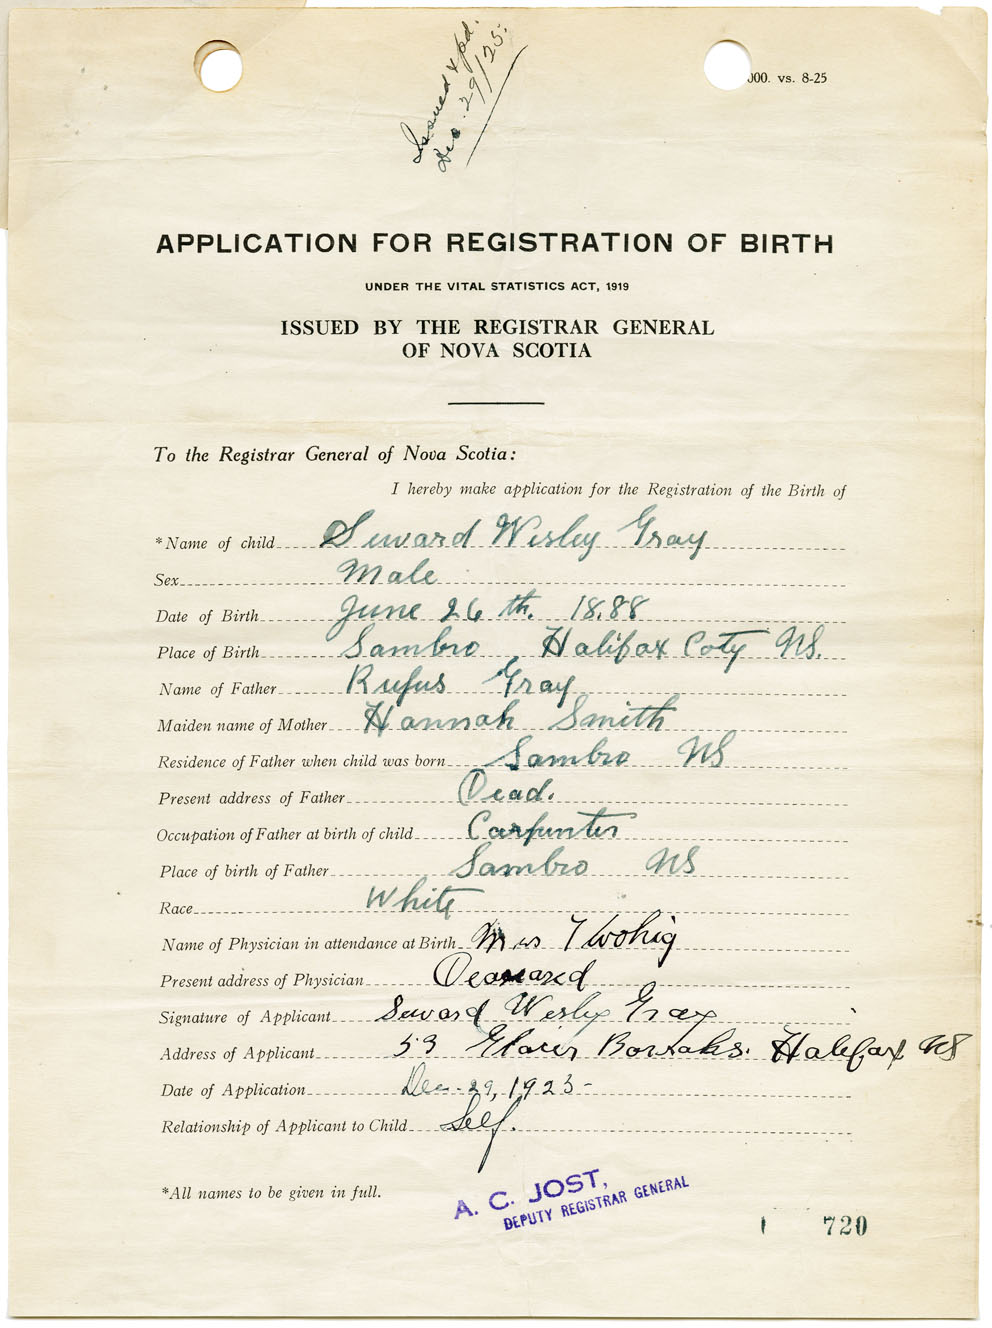 Issued & pd.
Dec. 29/25.
000. vs. 8-25
APPLICATION FOR REGISTRATION OF BIRTH
UNDER THE VITAL STATISTICS ACT, 1919
ISSUED BY THE REGISTRAR GENERAL
OF NOVA SCOTIA
To the Registrar General of Nova Scotia:
I hereby make application for the Registration of the Birth of
*Name of child Seward Wesley Gray
Sex Male
Date of Birth June 26th. 18.88
Place of Birth Sambro Halifax Coty NS.
Name of Father Rufus Gray
Maiden name of Mother Hannah Smith
Residence of Father when child was born Sambro NS
Present address of Father Dead.
Occupation of Father at birth of child Carpenter
Place of birth of Father Sambro NS
Race White
Name of Physician in attendance at Birth Mrs Twohig
Present address of Physician
Signature of Applicant Seward Wesley Gray
Address of Applicant 53 Halifax NS
Date of Application Dec. 29, 1925-
Relationship of Applicant to Child Self.
*All names to be given in full.
A. C. JOST,
DEPUTY REGISTRAR GENERAL
720